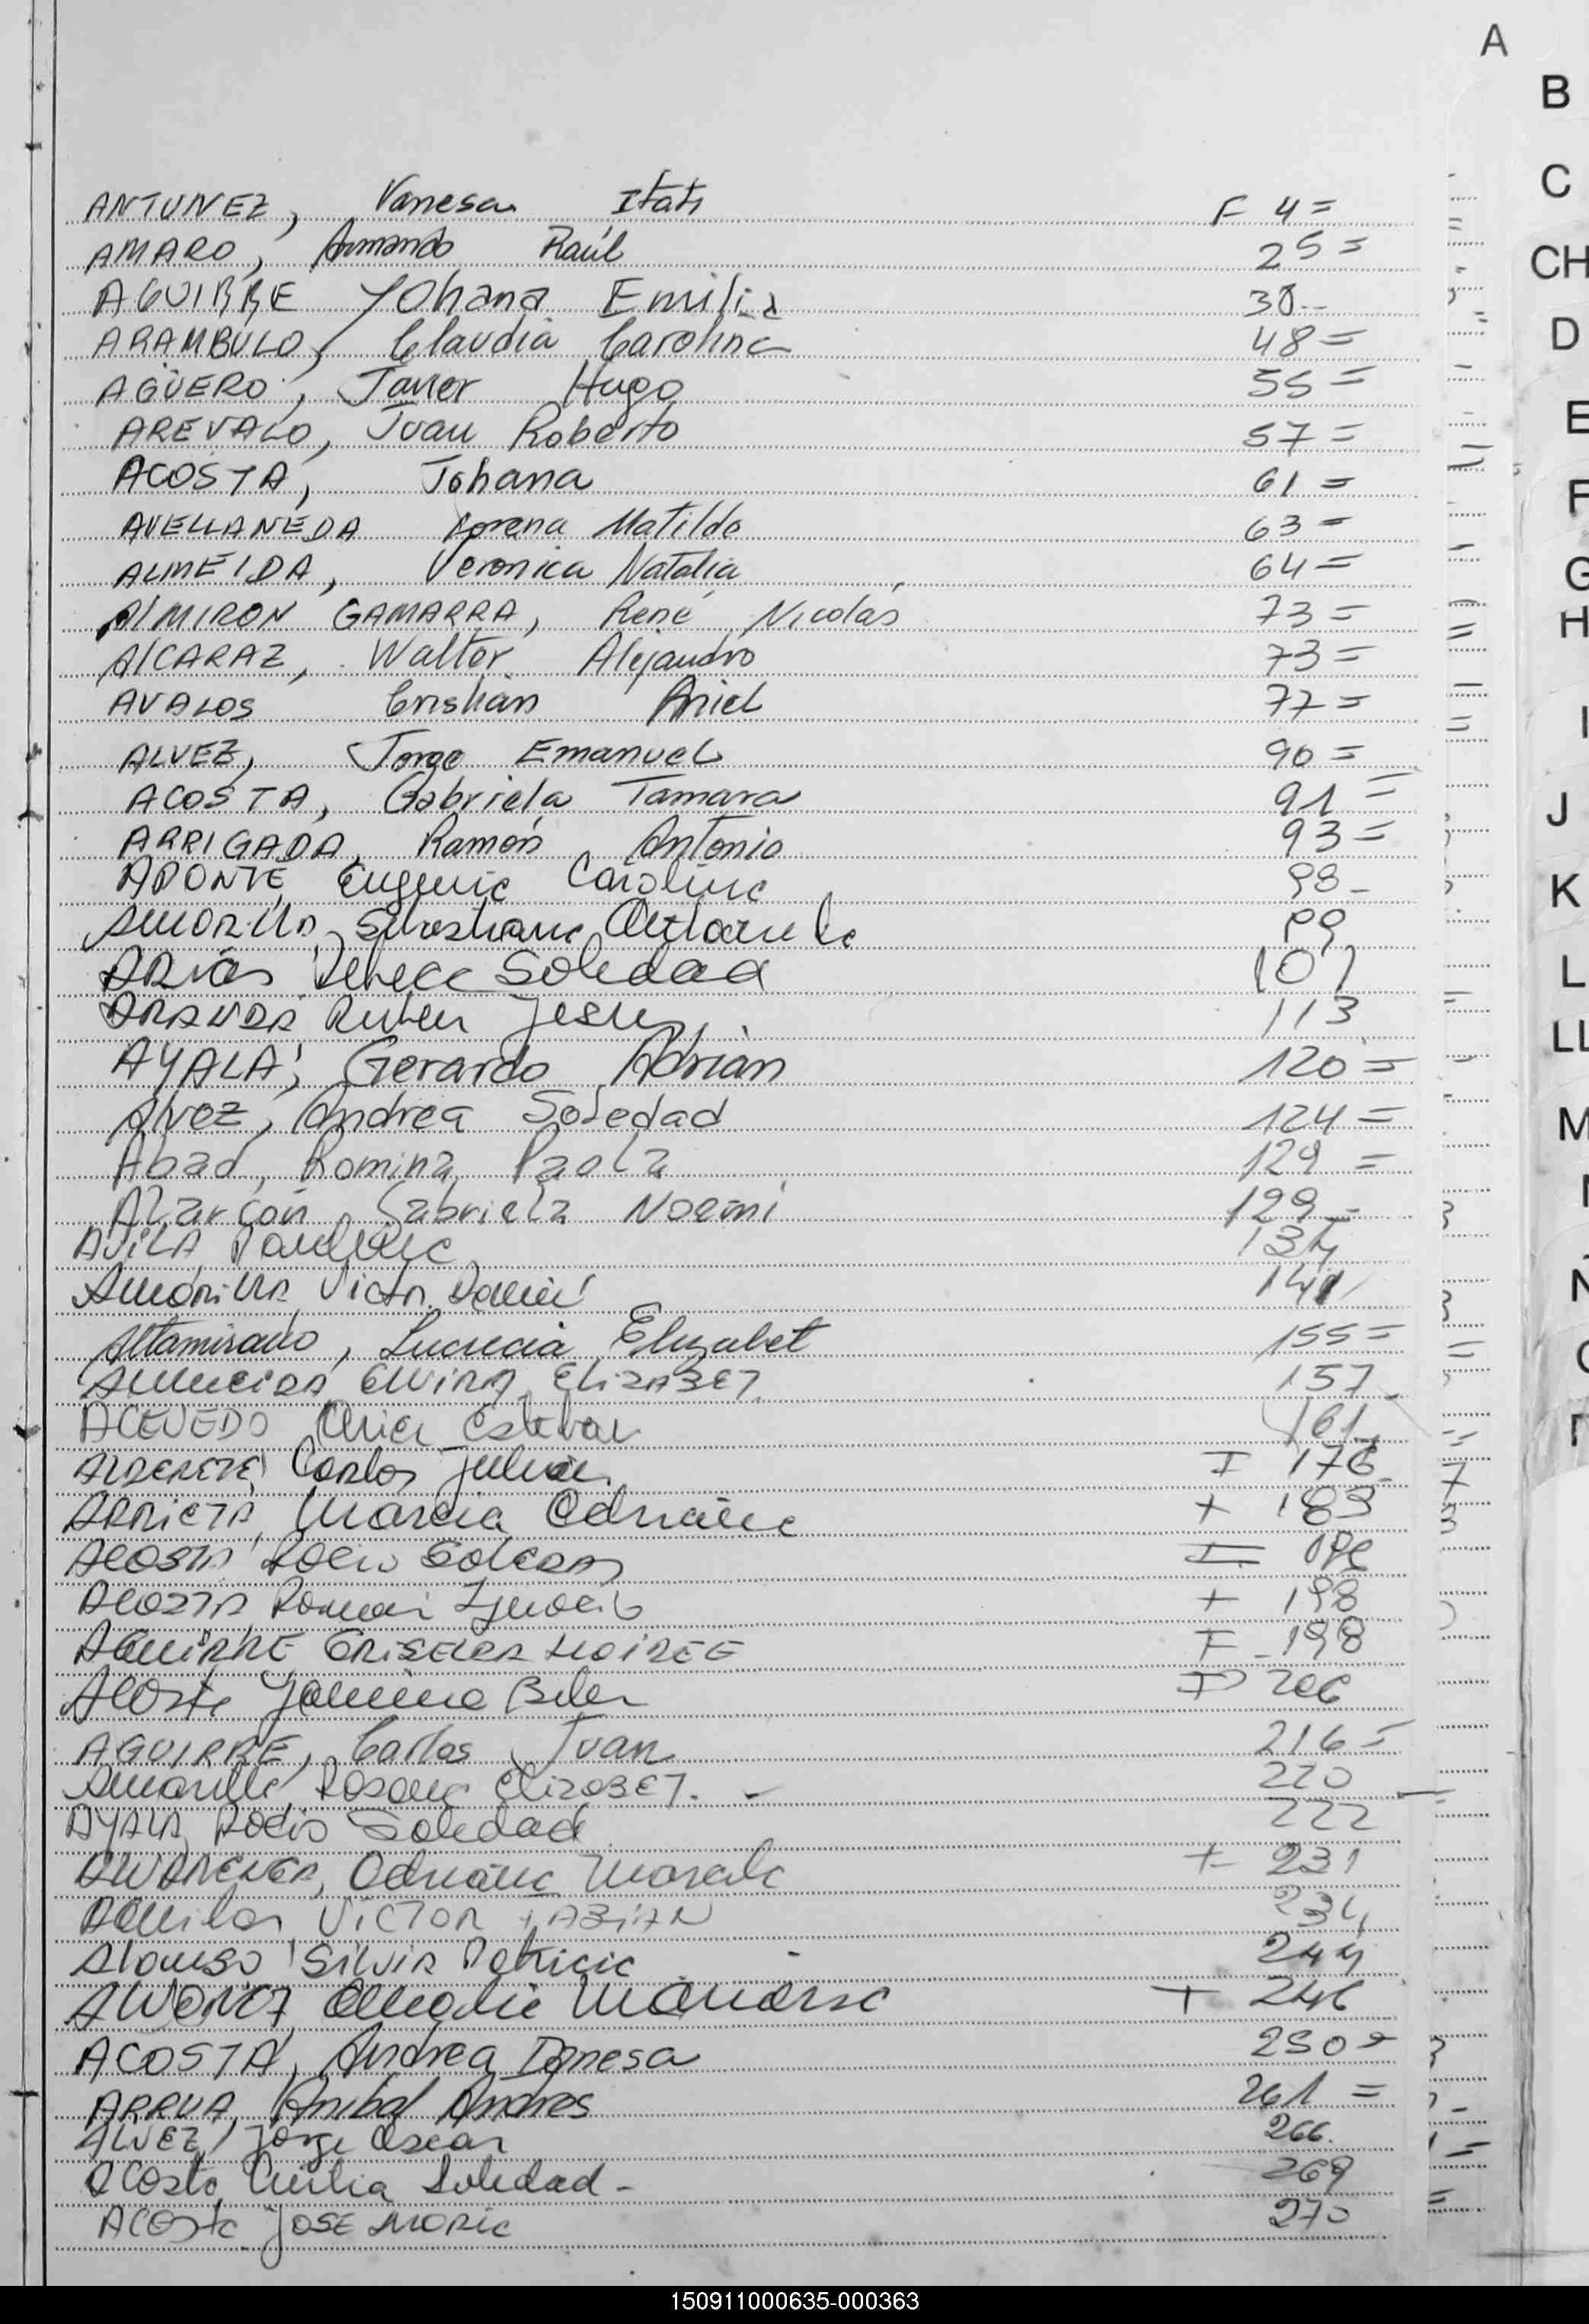 A
B
C
CH
D
E
F
G
H
I
J
K
L
LL
M
ANTUNEZ, Vanesa Itatí F 4=
AMARO, Armando Raúl 25=
AGUIRRE Yohana Emilia 38-
ARAMBULO, Claudia Carolina 48=
AGÜERO, Javier Hugo 55=
AREVALO, Juan Roberto 57=
ACOSTA, Johana 61=
AVELLANEDA Lorena Matilde 63=
ALMEIDA, Veronica Natalia 64=
AlMIRON GAMARRA, René Nicolás 73=
AlCARAZ, Walter Alejandro 73=
AVALOS Cristhian Ariel 77=
ALVEZ, Jorge Emanuel 90=
ACOSTA, Gabriela Tamara 91=
ARRIGADA, Ramón Antonio 93=
APONTE, Eugenia Carolina 98-
AMORILLA, Sebastiana 99
ARIAS Soledad 107
ARANDA Ruben Jesus 113
AYALA, Gerardo Adrián 120=
Alvez, Andrea Soledad 124=
Abad, Romina Paola 129=
Alarcón Gabriela Noemí 129-
AVILA, 134
AMORILLA, Victor Daniel 141
Altamirano, Lucrecia Elizabet 155=
ELVIRA ELIZABET 157
ACEVEDO Esteban 161
ALDERETE Carlos Julian 176
ARRIETA, Marcia Adriana + 183
ACOSTA Rocio
ACOSTA Roman Ignacio + 198
AGUIRRE GRISELDA F 198
Acosta Yamina Belen 206
AGUIRRE, Carlos Juan 216=
Amarilla, Rosana ELIZABET. 220
AYALA, Rocio Soledad 222
ALVARENGA, Adriana Marcela + 231
Aguilar VICTOR FABIAN 234
Alonso SILVIA Patricia 244
ALVAREZ, + 246
ACOSTA, Andrea Vanesa 250=
ARRUA, Anibal Andres 261=
ALVEZ, Jorge Oscar 266.
Acosta, Cecilia Soledad - 269
Acosta JOSE MARIA 270
150911000635-000363